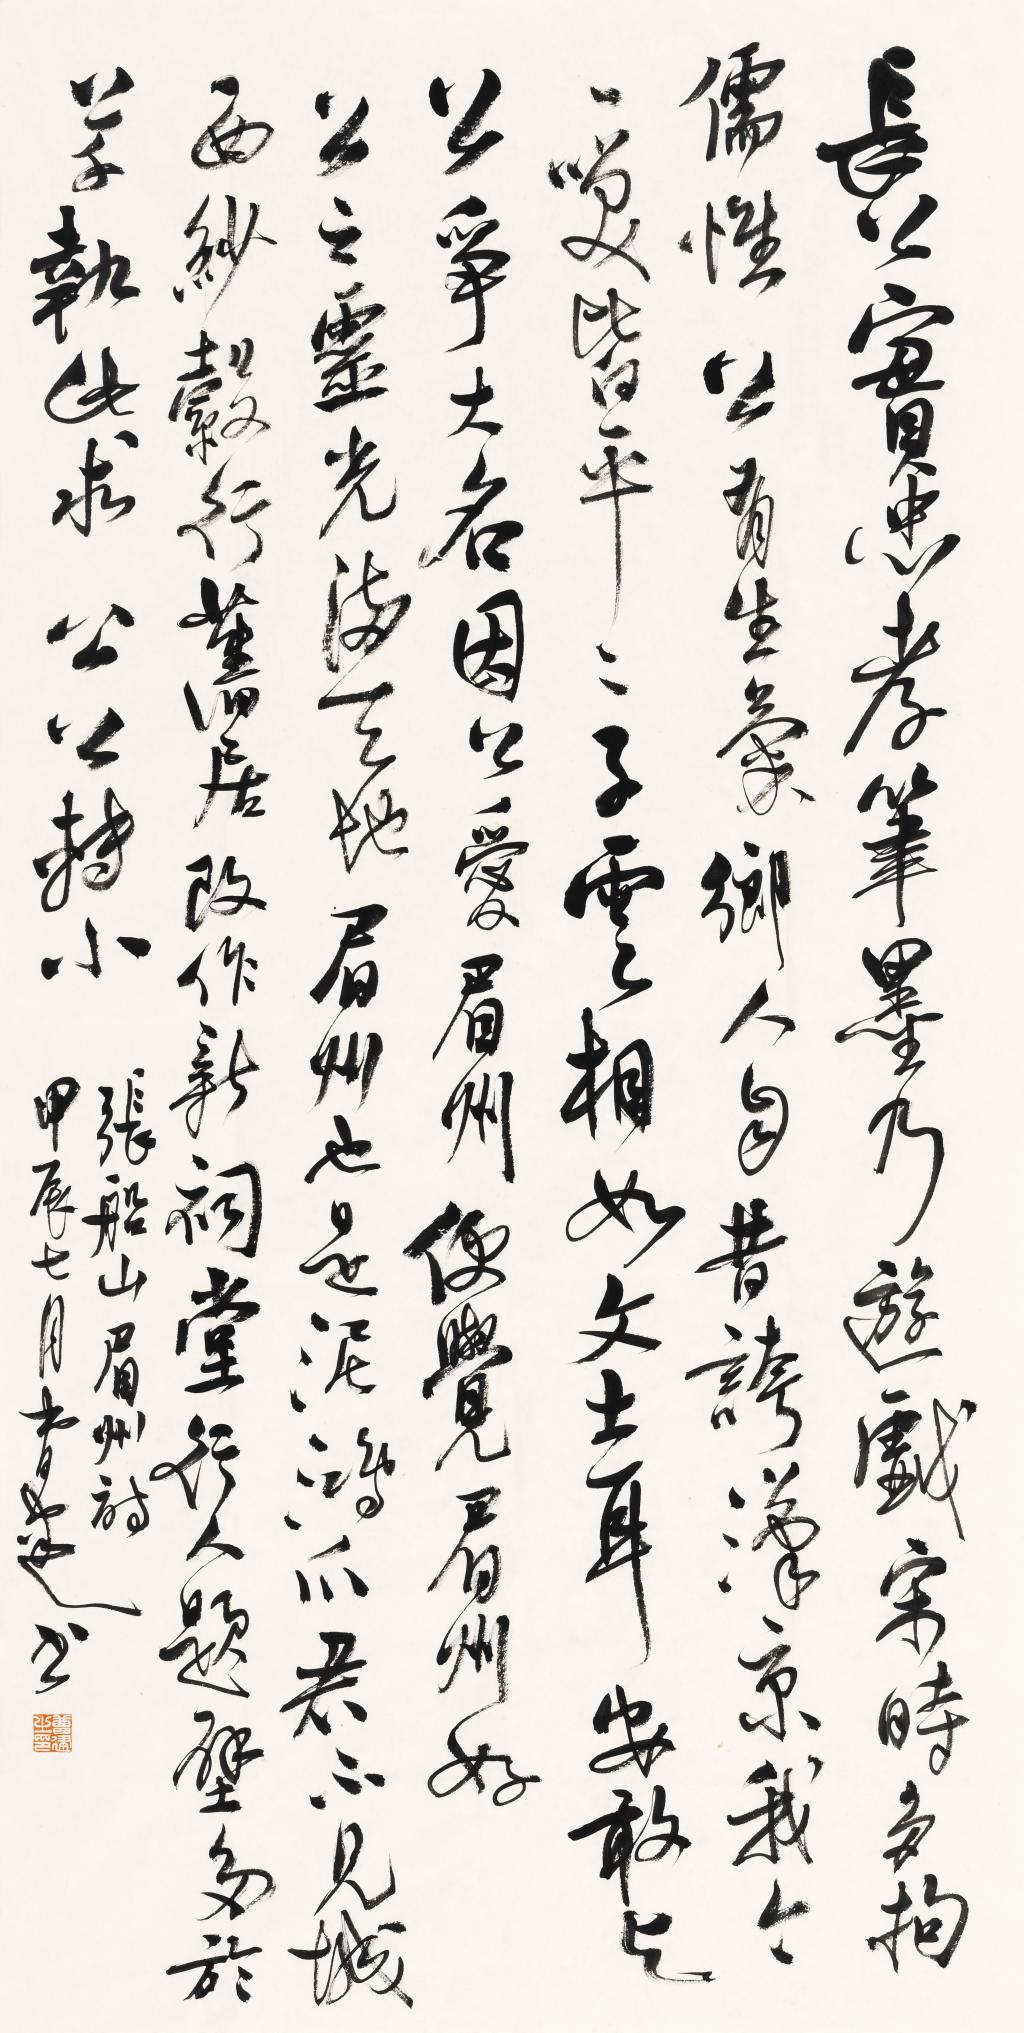 長公實忠孝筆墨乃遊戲宋時多拘
儒惟公有生氣鄉人自昔誇漢京我今
一笑皆平平子雲相如文士耳安敢與
公爭大名因公愛眉州便覺眉州好
公之靈光滿天地眉州也是泥鴻爪君不見城
西紗縠行舊居改作新祠堂行人題壁多於
草執此求公公轉小
張船山眉州詩
甲辰七月曹建書